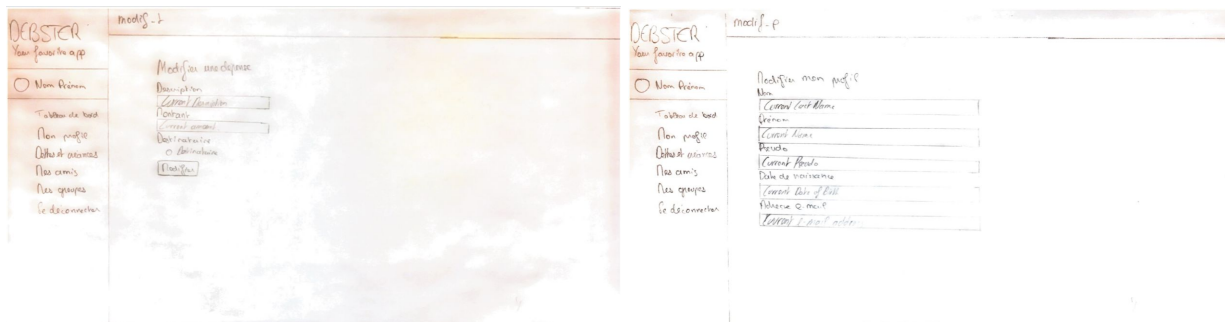 DEBSTER
Your favorite app
Nom Prénom
Tableau de bord
Mon profil
Dettes et avances
Mes amis
Mes groupes
Se déconnecter
modif_
Modifier une dépense
Description
Current Description
Montant
Current amount
Destinataire
Destinataire
Modifier
DEBSTER
Your favorite app
Nom Prénom
Tableau de bord
Mon profil
Dettes et avances
Mes amis
Mes groupes
Se déconnecter
modif_p
Modifier mon profil
Nom
Current Last Name
Prénom
Current Name
Pseudo
Current Pseudo
Date de naissance
Current Date of Birth
Adresse e-mail
Current E-mail